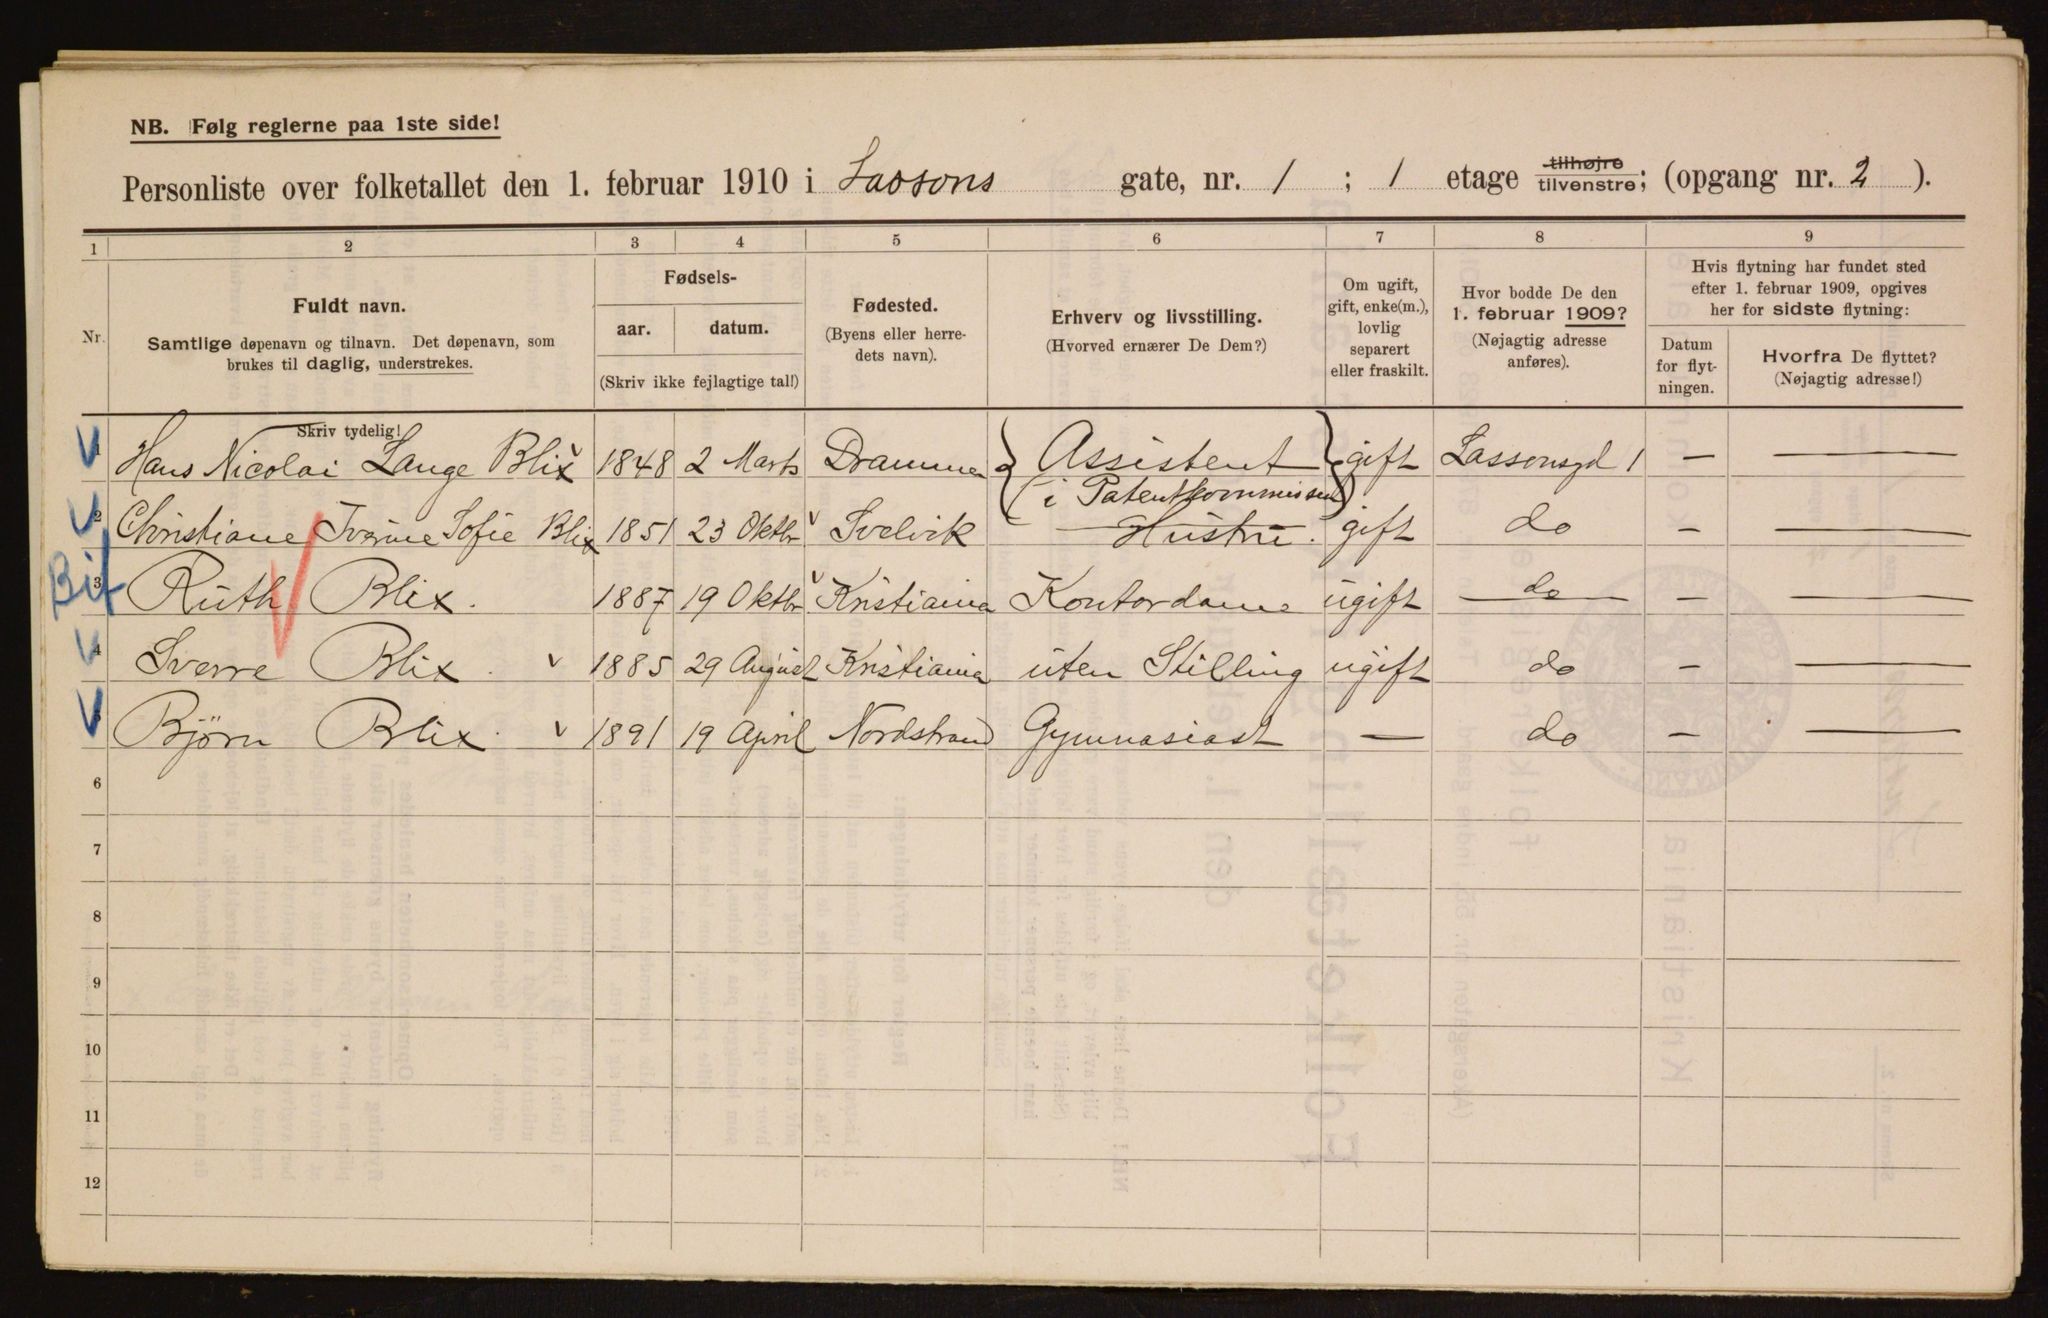 NB. Følg reglerne paa 1ste side!
Personliste over folketallet den 1. februar 1910 i Lassons gate, nr. 1 ; 1 etage tilhøjre tilvenstre; (opgang nr. 2 ).
1 2 3 4 5 6 7 8 9
Nr.
Fuldt navn.
Samtlige døpenavn og tilnavn. Det døpenavn, som
brukes til daglig, understrekes.
Skriv tydelig!
Fødsels-
aar. datum.
(Skriv ikke fejlagtige tal!)
Fødested.
(Byens eller herre-
dets navn).
Erhverv og livsstilling.
(Hvorved ernærer De Dem?)
Om ugift,
gift, enke(m.),
lovlig
separert
eller fraskilt.
Hvor bodde De den
1. februar 1909?
(Nøjagtig adresse
anføres).
Hvis flytning har fundet sted
efter 1. februar 1909, opgives
her for sidste flytning:
Datum
for flyt-
ningen.
Hvorfra De flyttet?
(Nøjagtig adresse!)
Hans Nicolai Lange Blix 1848 2 Marts Drammen Assistent gift Lassonsgd 1 —
(i Patentkommissionen)
2 Christiane Iverine Sofie Blix 1851 23 Oktbr Svelvik Hustru. gift do —
3 Ruth Blix. 1887 19 Oktbr Kristiania Kontordame ugift do —
4 Sverre Blix. 1885 29 August Kristiania uten Stilling ugift do —
Bjørn Blix. 1891 19 April Nordstrand Gymnasiast — do —
6
7
8
9
10
11
12